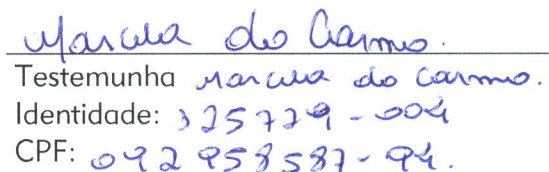 Marcela do Carmo.
Testemunha Marcela do Carmo.
Identidade: 325729-004
CPF: 092958587-94.